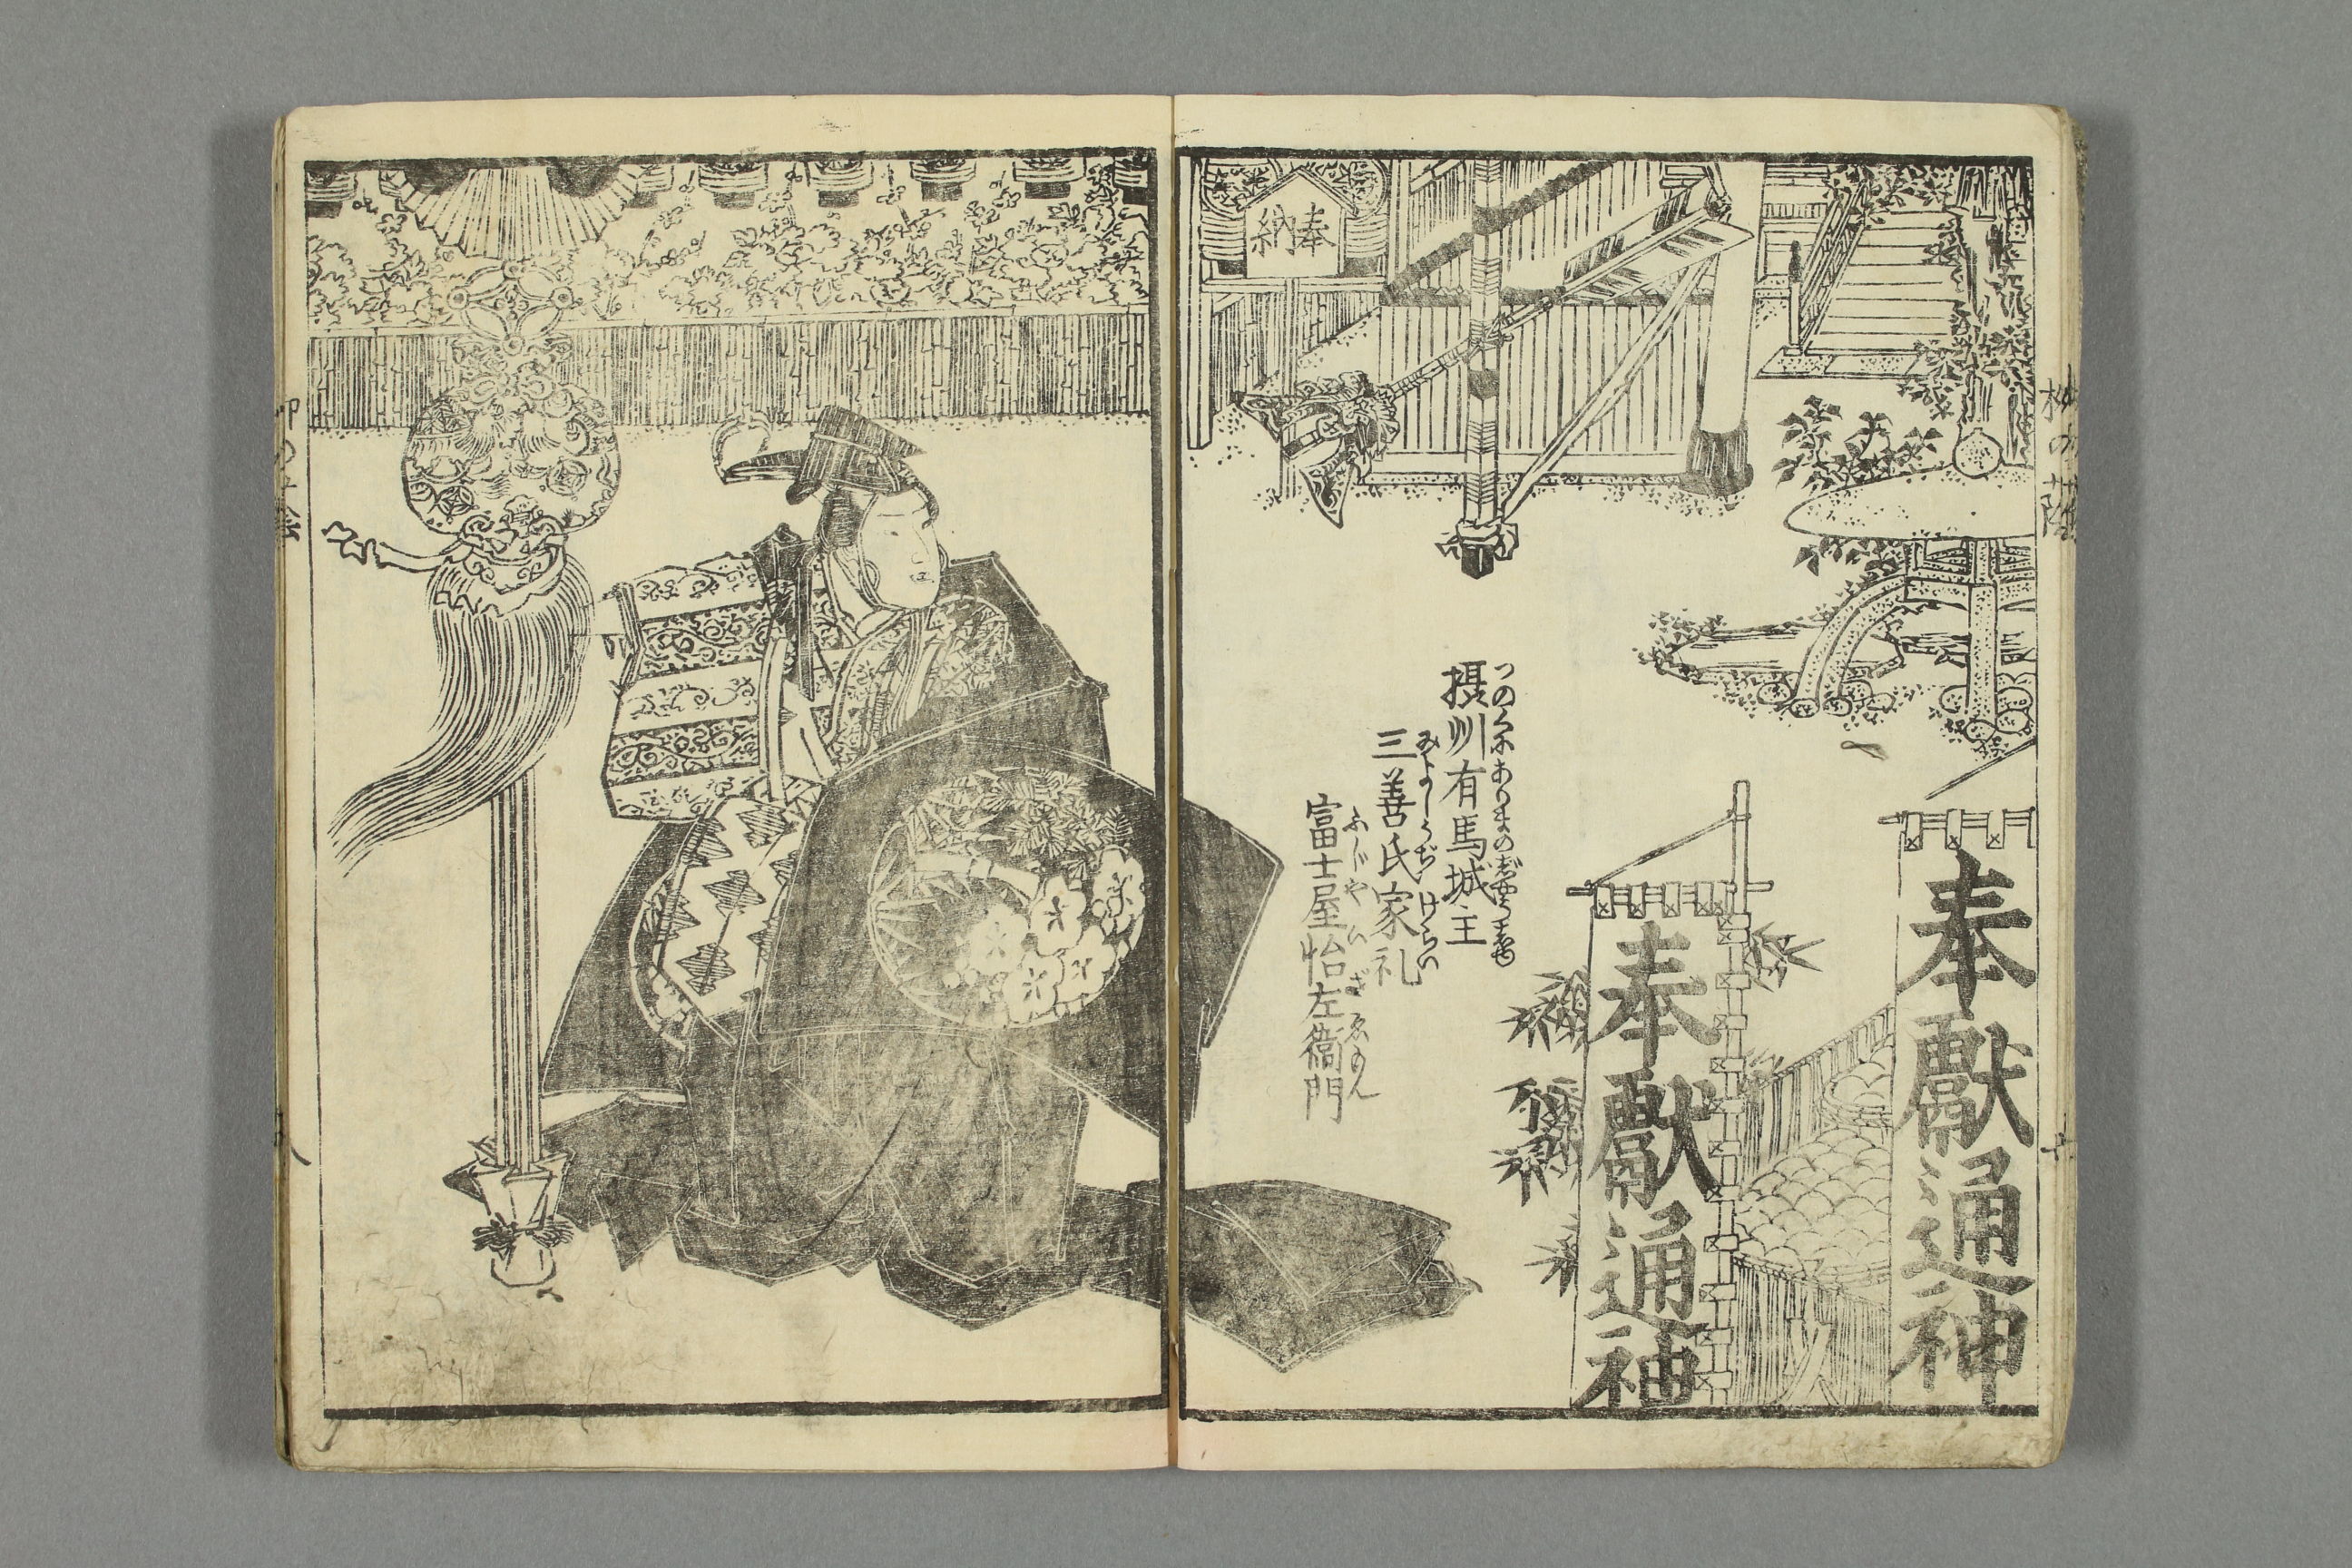 奉獻通神
奉獻通神
奉納
つのくにありまのぢやうしゆ
摂州有馬城主
みよしうぢけらい
三善氏家礼
ふじやいざゑもん
富士屋怡左衛門